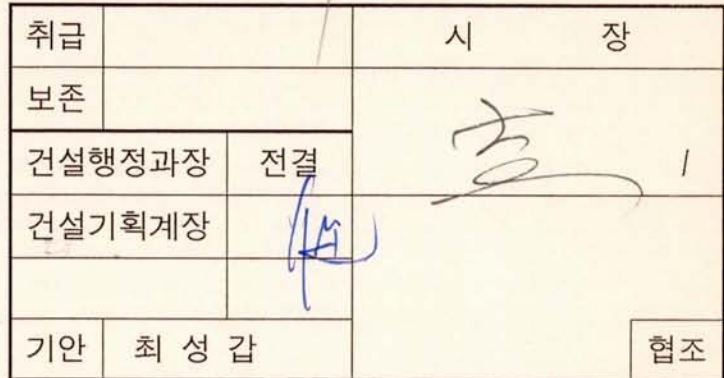 취급 시 장
보존
건설행정과장 전결
건설기획계장
기안 최 성 갑 협조